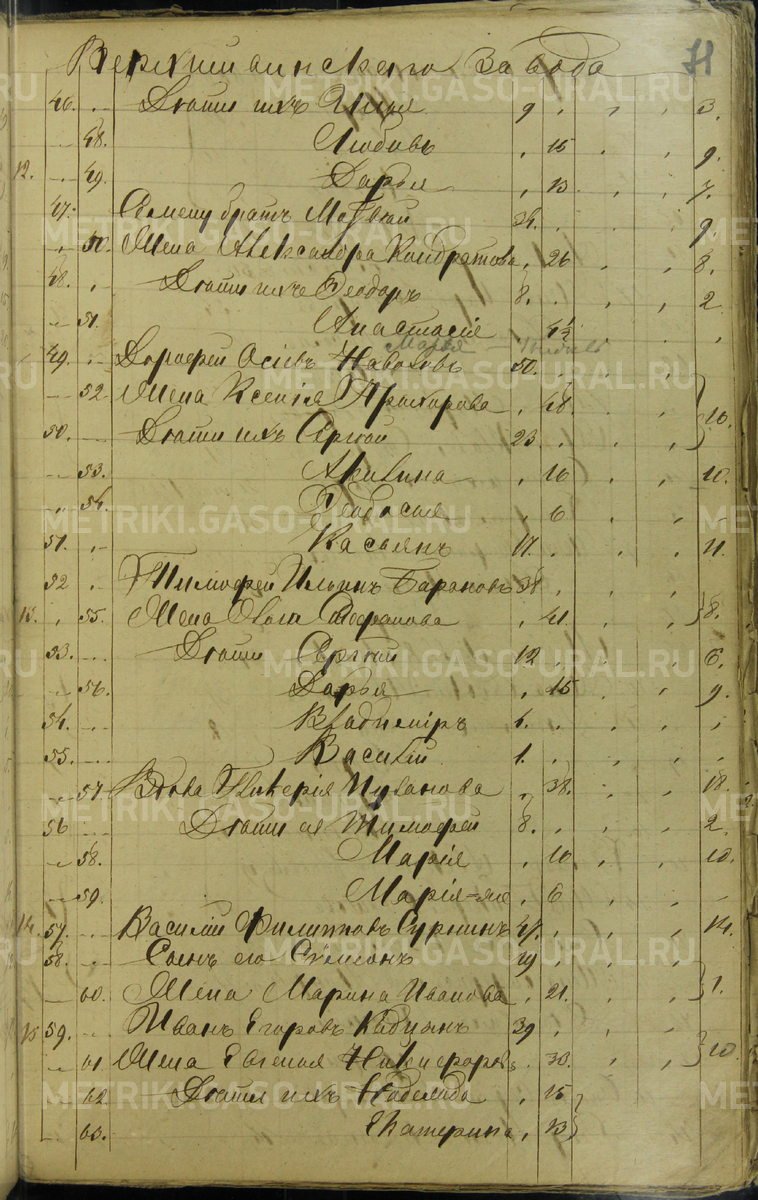 Верхишаинскаго завода 71
46. Дѣти ихъ Илья 9 3.
48. Любовь 15 9.
12. 49. Дарья 13 7.
47. братъ Матвей 34. 9.
50. Жена Александра Кондратова 26 8.
48. Дѣти ихъ Ѳеодоръ 8. 2
51. Анастасія
49. Дорофей Осиевъ 50.
52. Жена Ксенія Прохорова 48. 10.
50. Дѣти ихъ Сергей 23
53. Акилина 16 10.
54. Ѳеодосия 6
51. Касьянъ 17. 11.
52 Тимофей Ильинъ Барановъ 38
13. 55. Жена Ольга 41. 8.
53. Дѣти Сергей 12 6.
56. Дарья 15 9.
54. Владимиръ 6.
55. Василій 1.
57 Вдова Гликерія Иванова 38. 18.
56 Дѣти ея Тимофей 8. 2.
58. Марія 10 10.
59. Марія-же 6
14. 57. Василій Филипповъ Сурнинъ 47. 14.
58. Сынъ его Симеонъ 19
60. Жена Марина Иванова 21. 1.
15 59. Иванъ Егоровъ 39
61 Жена Евгения Никифорова 30. 10
62 Дѣти ихъ Надежда 15
63. Екатерина 13
METRIKI.GASO-URAL.RU